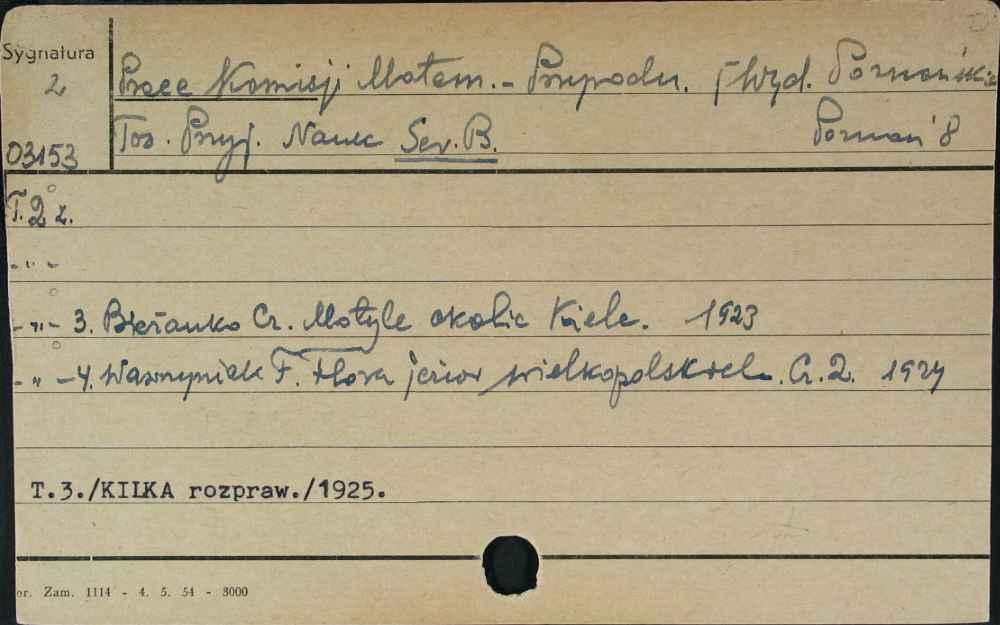 Sygnatura
2
03153
Prace Komisji Matem.- Przyrodn. Wyd. Poznańskie
Tow. Przyj. Nauk Ser. B. Poznań 8
T. 2 z.
- " -
- " - 3. Cz. Motyle okolic Kielc. 1923
- " - 4. F. Flora jezior wielkopolskich. Cz. 2. 1924
T.3./KILKA rozpraw./1925.
or. Zam. 1114 - 4. 5. 54 - 8000